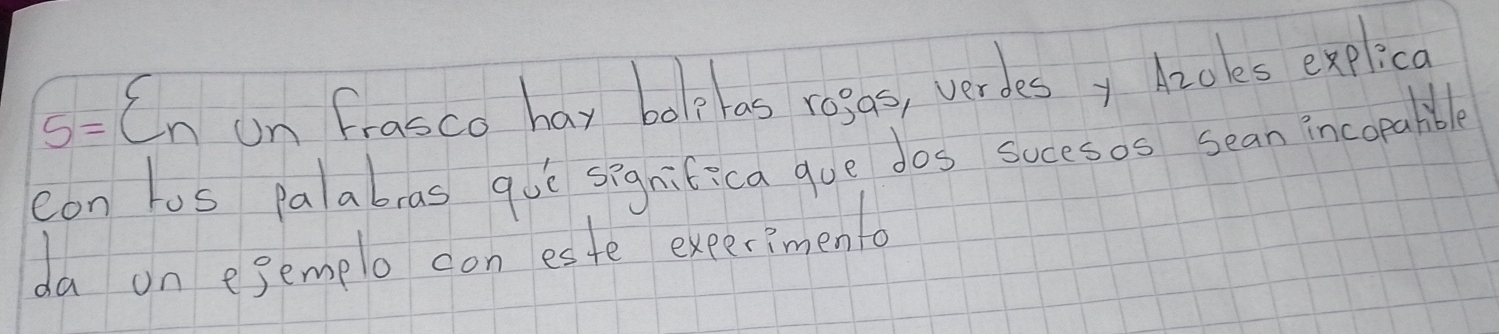 5= En un frasco hay bolitas rojas, verdes y Azules explica
con tus palabras qué significa que dos sucesos sean incopatible
da un ejemplo con este experimento